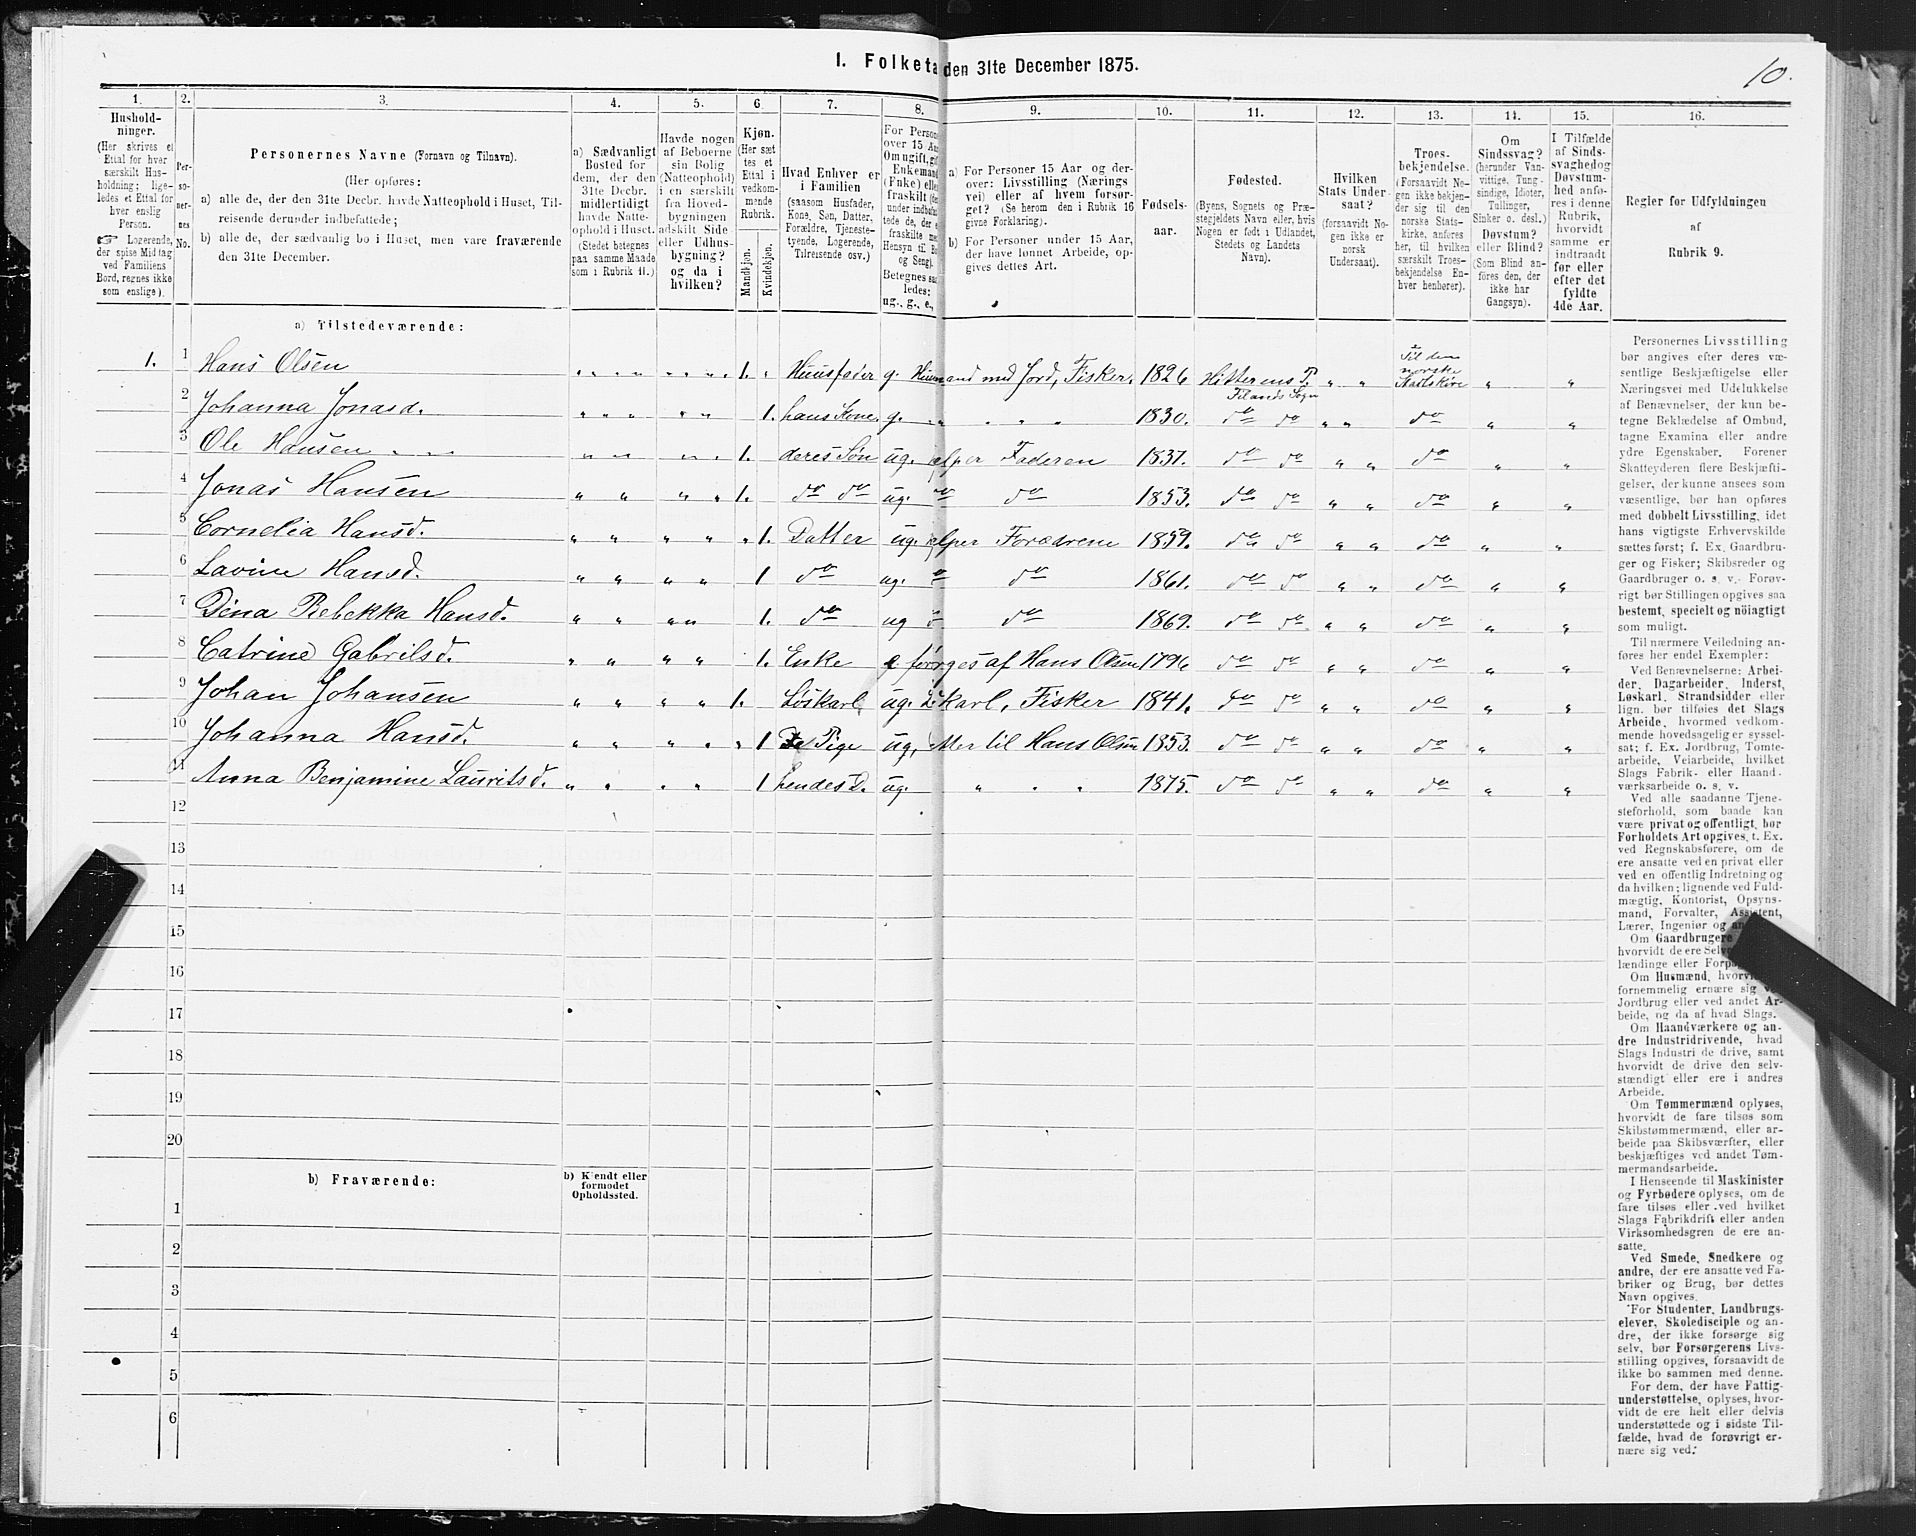 1. Folketa den 31te December 1875.
10.
1. 2. 3. 4. 5. 6. 7. 8. 9. 10. 11. 12. 13. 14. 15. 16.
Hushold-
ninger.
(Her skrives et
Ettal for hver
særskilt Hus-
holdning; lige-
ledes et Ettal for
hver enslig
Person.
☞ Logerende,
der spise Middag
ved Familiens
Bord, regnes ikke
som enslige).
Per-
so-
ner-
nes
No.
Personernes Navne (Fornavn og Tilnavn).
(Her opføres:
a) alle de, der den 31te Decbr. havde Natteophold i Huset, Til-
reisende derunder indbefattede;
b) alle de, der sædvanlig bo i Huset, men vare fraværende
den 31te December.
a) Sædvanligt
Bosted for
dem, der den
31te Decbr.
midlertidigt
havde Natte-
ophold i Huset.
(Stedet betegnes
paa samme Maade
som i Rubrik 11.)
Havde nogen
af Beboerne
sin Bolig
(Natteophold)
i en særskilt
fra Hoved-
bygningen
adskilt Side-
eller Udhus-
bygning?
og da i
hvilken?
Kjøn.
(Her sæt-
tes et
Ettal i
vedkom-
mende
Rubrik.
Mandkjøn.
Kvindekjøn.
Hvad Enhver er
i Familien
(saasom Husfader,
Kone, Søn, Datter,
Forældre, Tjeneste-
tyende, Logerende,
Tilreisende osv.)
For Person
over 15 Aa
Om ugift, gif
Enkemand
(Fnke) elle
fraskilt (for
under indbefat-
tede de, der e
fraskilte med
Hensyn til Bo
og Seng).
Betegnes saa
ledes:
ug., g., e.,
a) For Personer 15 Aar og der-
over: Livsstilling (Nærings
vei) eller af hvem forsør-
get? (Se herom den i Rubrik 16
givne Forklaring).
b) For Personer under 15 Aar,
der have lønnet Arbeide, op-
gives dettes Art.
Fødsels-
aar.
Fødested.
(Byens, Sognets og Præ-
stegjeldets Navn eller, hvis
Nogen er født i Udlandet,
Stedets og Landets
Navn).
Hvilken
Stats Under-
saat?
(foruaavidt No-
gen ikke er
norsk
Undersaat).
Troes-
bekjendelse.
(Forsaavidt No-
gen ikke bekjen-
der sig til den
norske Stats-
kirke, anføres
her, til hvilken
særskilt Troes-
bekjendelse En-
hver henhører).
Om
Sindssvag?
(herunder Van-
vittige, Tung-
sindige, Idioter,
Tullinger,
Sinker o. desl.)
Døvstum?
eller Blind?
(Som Blind an-
føres den, der
ikke har
Gangsyn).
I Tilfælde
af Sinds-
svaghed og
Døvstum-
hed anfø-
res i denne
Rubrik,
hvorvidt
samme er
indtraadt
før eller
efter det
fyldte
4de Aar.
Regler for Udfyldningen
af
Rubrik 9.
a) Tilstedeværende:
1. 1 Hans Olsen " " " " " " " " 1. " Huusfader g. Huusmand med Jord, Fisker. 1826 Hitterens P. Filands Sogn " " Til den norske Statskirke " "
2 Johanna Jonasd. " " " " " 1. hans Kone g. " " " " 1830. do do " " do " "
3 Ole Hansen " " " " " " " 1. deres Søn ug. elper Faderen 1837. do do " " do " "
4 Jonas Hansen " " " " 1. do do ug. do do 1853. do do " " do " "
5 Cornelia Hansd. " " " " " 1. Datter ug. elper Forædrene 1859. do do " " do " "
6 Lavine Hansd. " " " " 1 do ug. do do 1861. do do " " do " "
7 Dina Rebekka Hansd. " " " " 1. do ug do do 1869. do do " " do " "
8 Catrine Gabrilsd. " " " " 1. Enke e forsørges af Hans Olsen 1796 do do " " do " "
9 Johan Johansen " " " " 1. Løskarl ug. Løskarl, Fisker 1841. do do " " do " "
10 Johanna Hansd. " " " " " 1 Pige ug. Datter til Hans Olsen 1853. do do " " do " "
11 Anna Benjamine Lauritsd. " " " " 1 hendes D. ug. " " " 1875. do do " " do " "
12
13
14
15
16
17
18
19
20
b) Fraværende:
b) Kjendt eller
formodet
Opholdssted.
1
2
3
4
5
6
Personernes Livsstilling
bør angives efter deres væ-
sentlige Beskjæftigelse eller
Næringsvei med Udelukkelse
af Benævnelser, der kun be-
tegne Beklædelse af Ombud,
tagne Examina eller andre
ydre Egenskaber. Forener
Skatteyderen flere Beskjæfti-
gelser, der kunne ansees som
væsentlige, bør han opføres
med dobbelt Livsstilling, idet
hans vigtigste Erhvervskilde
sættes først; f. Ex. Gaardbru-
ger og Fisker; Skibsreder og
Gaardbruger o. s. v. Forøv-
rigt bør Stillingen opgives saa
bestemt, specielt og nöiagtigt
som muligt.
Til nærmere Veiledning an-
føres her endel Exempler:
Ved Benævnelserne: Arbei-
der, Dagarbeider, Inderst,
Løskarl, Strandsidder eller
lign. bør tilføies det Slags
Arbeide, hvormed vedkom-
mende hovedsagelig er syssel-
sat; f. Ex. Jordbrug, Tomte-
arbeide, Veiarbeide, hvilket
Slags Fabrik- eller Haand-
værksarbeide o. s. v.
Ved alle saadanne Tjene-
steforhold, som baade kan
være privat og offentligt, bør
Forholdets Art opgives, t. Ex.
ved Regnskabsførere, om de
ere ansatte ved en privat eller
ved en offentlig Indretning og
da hvilken; lignende ved Fuld-
mægtig, Kontorist, Opsyns-
mand, Forvalter, Assistent,
Lærer, Ingeniør og
Om Gaardbrugere
hvorvidt de ere
lændinge eller
Om Husmænd,
fornemmelig ernære sig
Jordbrug eller ved andet Ar-
beide, og da af hvad Slags.
Om Haandværkere og an-
dre Industridrivende, hvad
Slags Industri de drive, samt
hvorvidt de drive den selv-
stændigt eller ere i andres
Arbeide.
Om Tømmermænd oplyses,
hvorvidt de fare tilsøs som
Skibstømmermænd, eller ar-
beide paa Skibsværfter, eller
beskjæftiges ved andet Tøm-
mermandsarbeide.
I Henseende til Maskinister
og Fyrbødere oplyses, om de
fare tilsøs eller ved hvilket
Slags Fabrikdrift eller anden
Virksomhedsgren de ere an-
satte.
Ved Smede, Snedkere og
andre, der ere ansatte ved Fa-
briker og Brug, bør dettes
Navn opgives.
For Studenter, Landbrugs-
elever, Skoledisciple og an-
dre, der ikke forsørge sig
selv, bør Forsørgerens Livs-
stilling opgives, forsaavidt de
ikke bo sammen med denne.
For dem, der have Fattig-
understøttelse, oplyses, hvor-
vidt de ere helt eller delvis
understøttede og i sidste Til-
fælde, hvad de forøvrigt er-
nære sig ved.